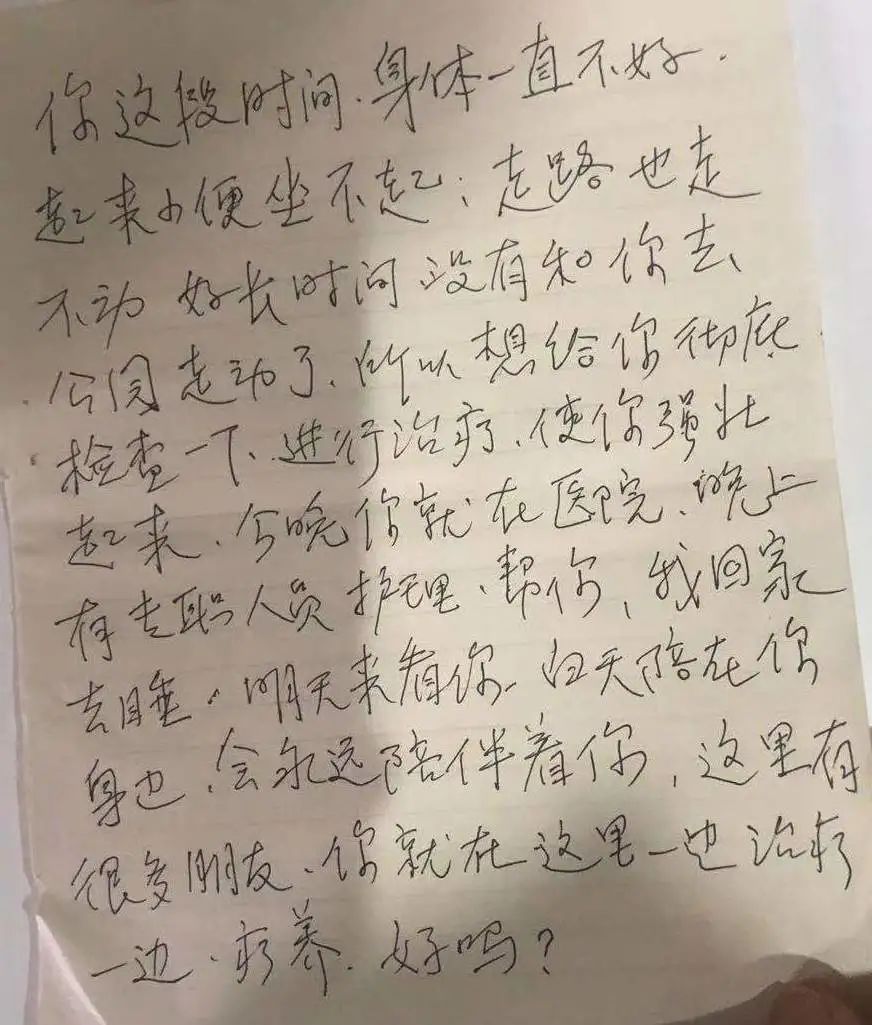 你这段时间.身体一直不好.
起来小便坐不起;走路也走
不动 好长时间没有和你去
公园走动了.所以想给你彻底
检查一下、进行治疗.使你强壮
起来.今晚你就在医院.晚上
有专职人员护理、帮你,我回家
去睡.明天来看你.白天陪在你
身边.会永远陪伴着你,这里有
很多朋友、你就在这里一边治疗
一边.疗养.好吗?